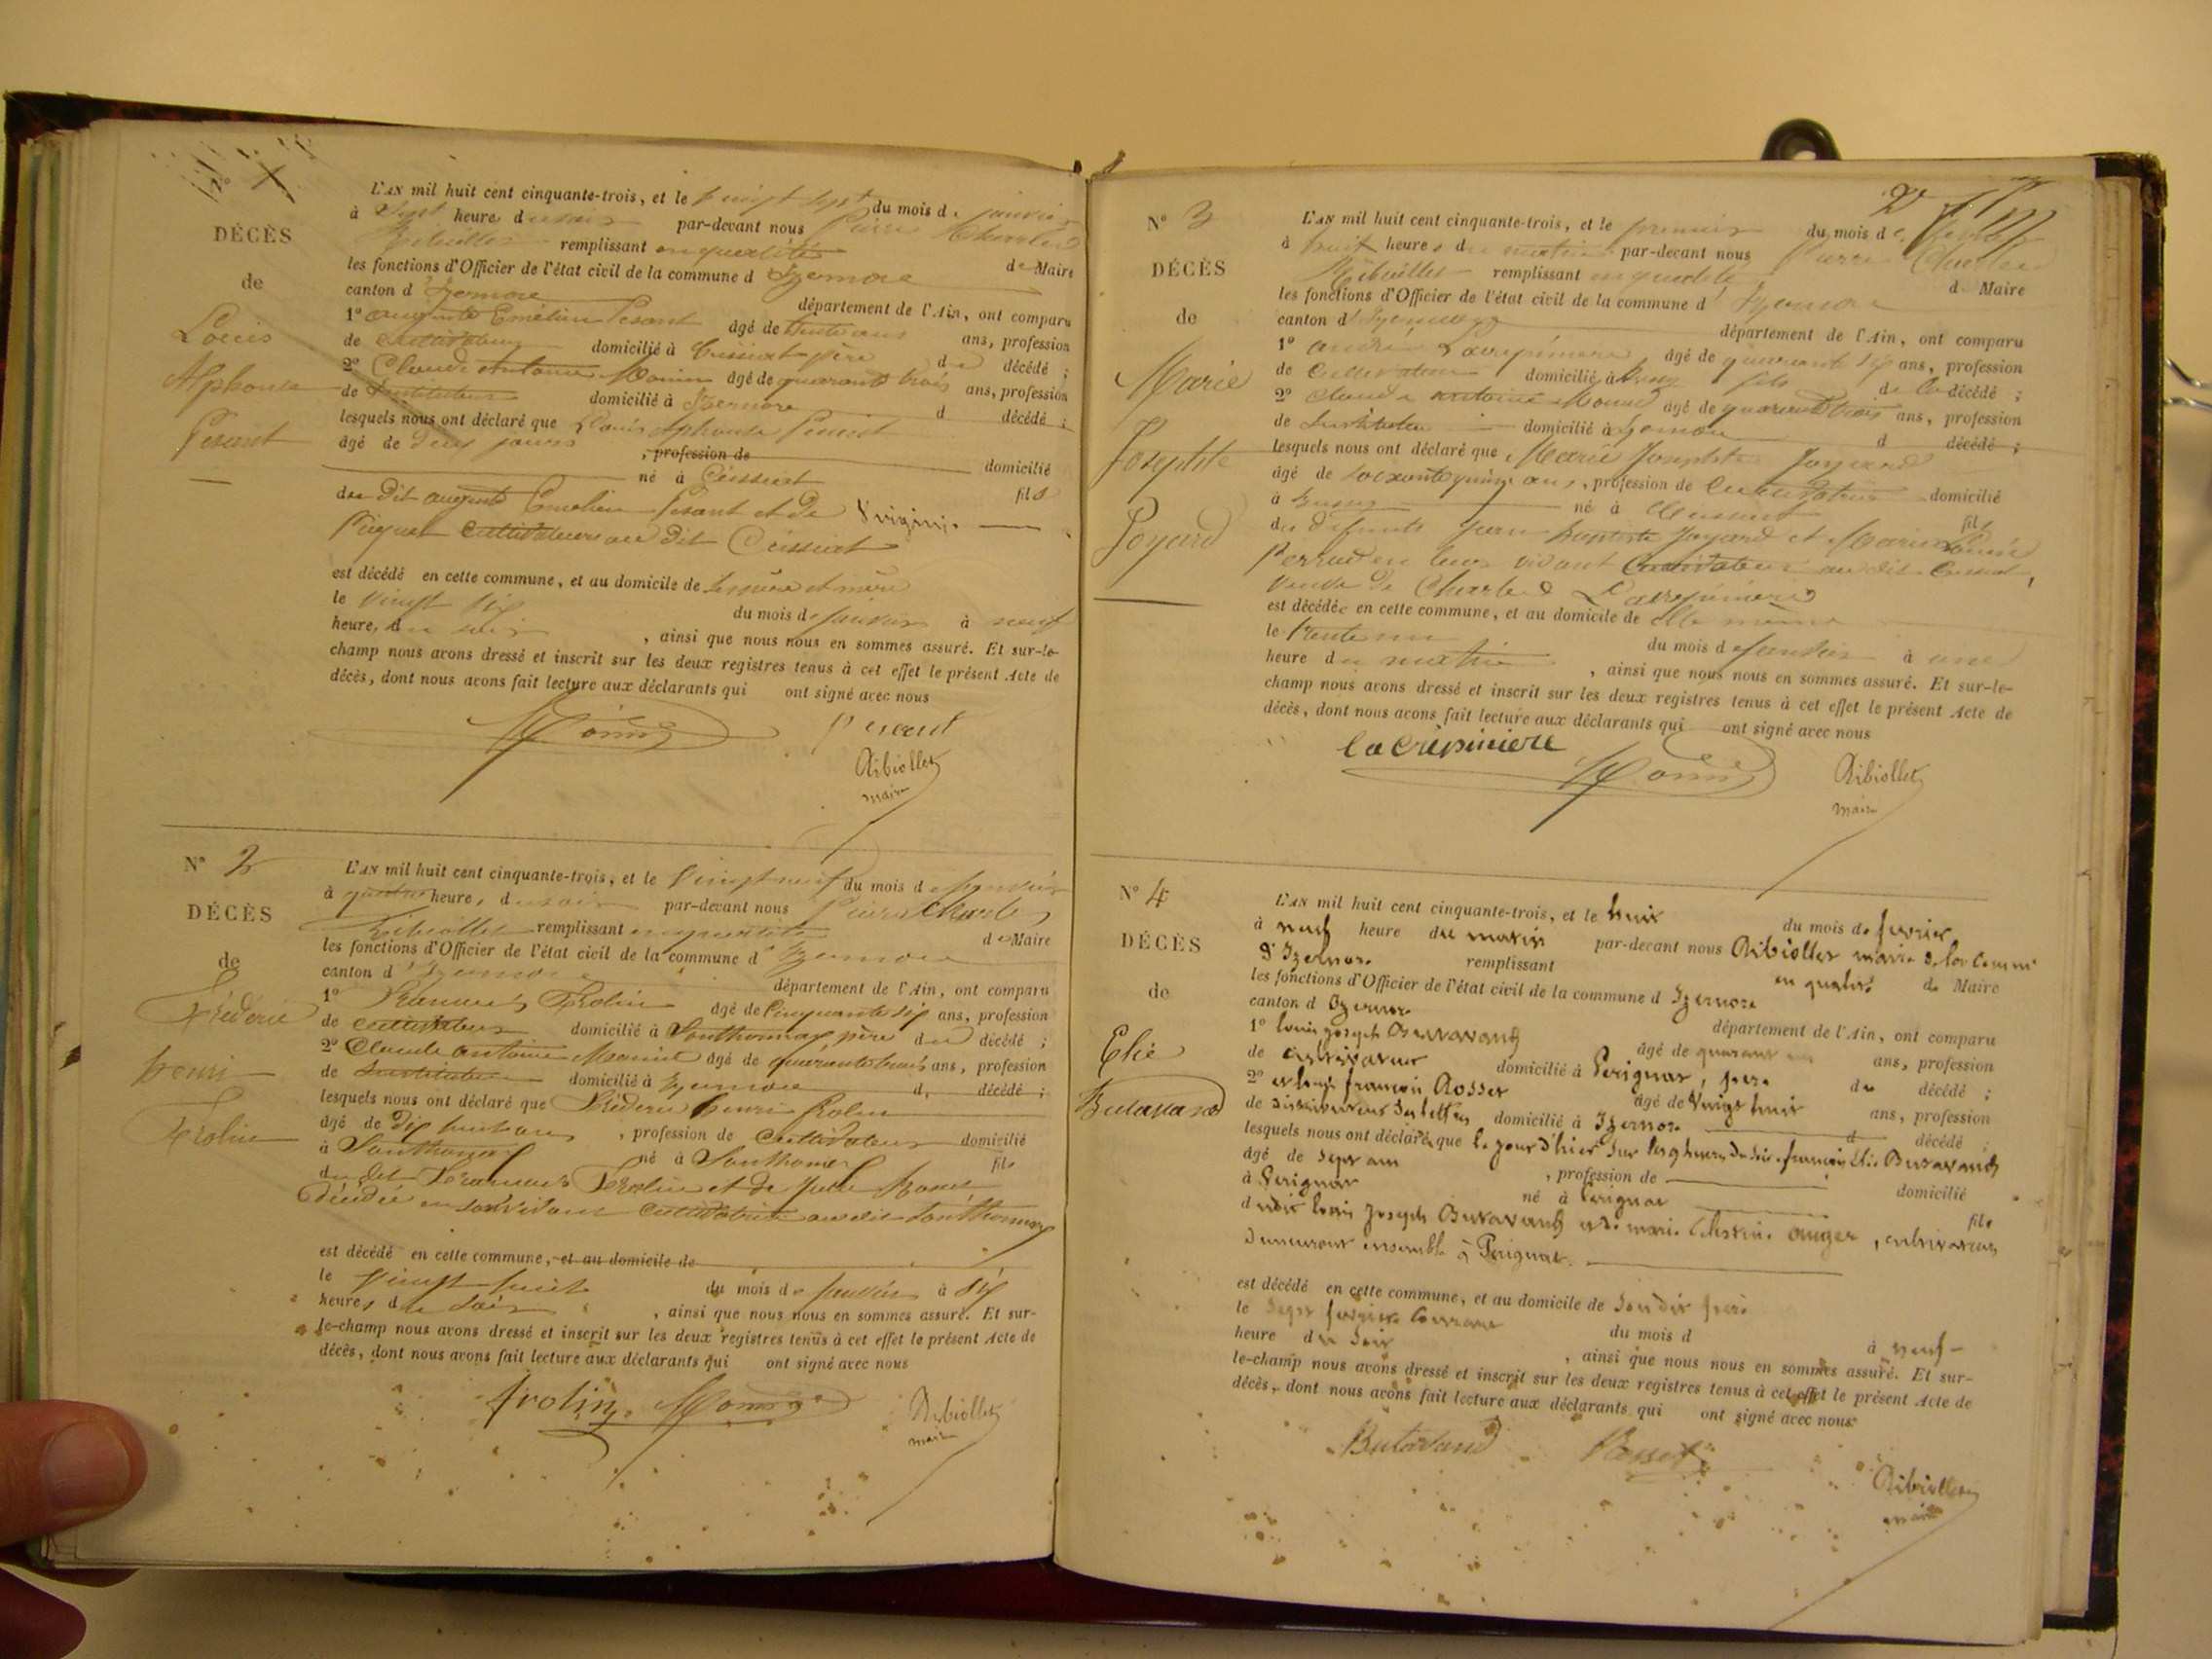 DÉCÈS
de
Louis
Alphonse
Pesant
L'AN mil huit cent cinquante-trois, et le vingt sept du mois de janvier
à sept heures du soir par-devant nous Pierre Charles
remplissant en qualité
les fonctions d'Officier de l'état civil de la commune d'Izernore de Maire
canton d'Izernore département de l'Ain, ont comparu
1º auguste Emélien Pesant âgé de trente ans ans, profession
de cultivateur domicilié à Ceissiat père du décédé ;
2º Claude Antoine Monin âgé de quarante trois ans, profession
de Instituteur domicilié à Izernore d décédé ;
lesquels nous ont déclaré que Louis Alphonse Pesant
âgé de deux jours , profession de domicilié
né à Ceissiat fils
du dit auguste Emelien Pesant et de Virginie
Piquet cultivateurs au dit Ceissiat
est décédé en cette commune, et au domicile de ses père et mère
le vingt six du mois de janvier à neuf
heure, du soir , ainsi que nous nous en sommes assuré. Et sur-le-
champ nous avons dressé et inscrit sur les deux registres tenus à cet effet le présent Acte de
décès, dont nous avons fait lecture aux déclarants qui ont signé avec nous
Monin Pesant
Ribiollet
maire
Nº 2
DÉCÈS
de
Fréderic
henri
Frolin
L'AN mil huit cent cinquante-trois, et le vingt neuf du mois de janvier
à quatre heure, du soir par-devant nous Pierre Charles
Ribiollet remplissant en qualité
les fonctions d'Officier de l'état civil de la commune d'Izernore de Maire
canton d'Izernore département de l'Ain, ont comparu
1º Frolin âgé de Cinquante six ans, profession
de cultivateur domicilié à Sonthonnax père du décédé ;
2º Claude antoine Monin âgé de quarante trois ans, profession
de Instituteur domicilié à Izernore d décédé ;
lesquels nous ont déclaré que Fréderic henri Frolin
âgé de dix huit ans , profession de cultivateur domicilié
à Sonthonnax né à Sonthonnax fils
du dit Frolin et de
décédée en son vivant cultivatrice au dit Sonthonnax
est décédé en cette commune, et au domicile de
le vingt huit du mois de janvier à six
heures du soir , ainsi que nous nous en sommes assuré. Et sur-
le-champ nous avons dressé et inscrit sur les deux registres tenus à cet effet le présent Acte de
décès, dont nous avons fait lecture aux déclarants qui ont signé avec nous
frolin Monin Ribiollet
maire
2
Nº 3
DÉCÈS
de
Marie
Josephte
Joyard
L'AN mil huit cent cinquante-trois, et le premier du mois de
à huit heures du matin par-devant nous Pierre Charles
Ribiollet remplissant en qualité de Maire
les fonctions d'Officier de l'état civil de la commune d'Izernore
canton d'Izernore département de l'Ain, ont comparu
1º andré Lacrépinière âgé de quarante six ans, profession
de cultivateur domicilié à fils de la décédé ;
2º claude antoine Monin âgé de quarante trois ans, profession
de Instituteur domicilié à Izernore d décédé ;
lesquels nous ont déclaré que Marie Josephte Joyard
âgé de soixante quinze ans, profession de cultivatrice domicilié
à né à Ceissiat fil
des défunts Jean baptiste Joyard et
Perrud en leur vivant cultivateurs au dit Ceissiat,
veuve de Charles Lacrépinière
est décédée en cette commune, et au domicile de elle même
le trente un du mois de janvier à une
heure du matin , ainsi que nous nous en sommes assuré. Et sur-le-
champ nous avons dressé et inscrit sur les deux registres tenus à cet effet le présent Acte de
décès, dont nous avons fait lecture aux déclarants qui ont signé avec nous
lacrépiniere Monin Ribiollet
maire
Nº 4
DÉCÈS
de
Elie
Butavand
L'AN mil huit cent cinquante-trois, et le huit du mois de fevrier
à neuf heure du matin par-devant nous Ribiollet maire de la Commune
d'Izernore remplissant en qualité de Maire
les fonctions d'Officier de l'état civil de la commune d Izernore
canton d Izernore département de l'Ain, ont comparu
1º louis joseph Butavand âgé de quarante ans, profession
de cultivateur domicilié à Perignat, pere du décédé ;
2º françois Rosset âgé de vingt huit ans, profession
de distributeur des lettres domicilié à Izernore d décédé
lesquels nous ont déclaré que le jour d'hier sur les neuf heures du soir françois Elie Butavand
âgé de sept ans , profession de domicilié
à Perignat né à Perignat fils
dudit louis joseph Butavand et de marie Celestine auger, cultivateurs
demeurant ensemble à Perignat
est décédé en cette commune, et au domicile de son dit père
le sept fevrier courant du mois d à neuf
heure du soir , ainsi que nous nous en sommes assuré. Et sur-
le-champ nous avons dressé et inscrit sur les deux registres tenus à cet effet le présent Acte de
décès, dont nous avons fait lecture aux déclarants qui ont signé avec nous
Butavand Rosset
Ribiollet
maire